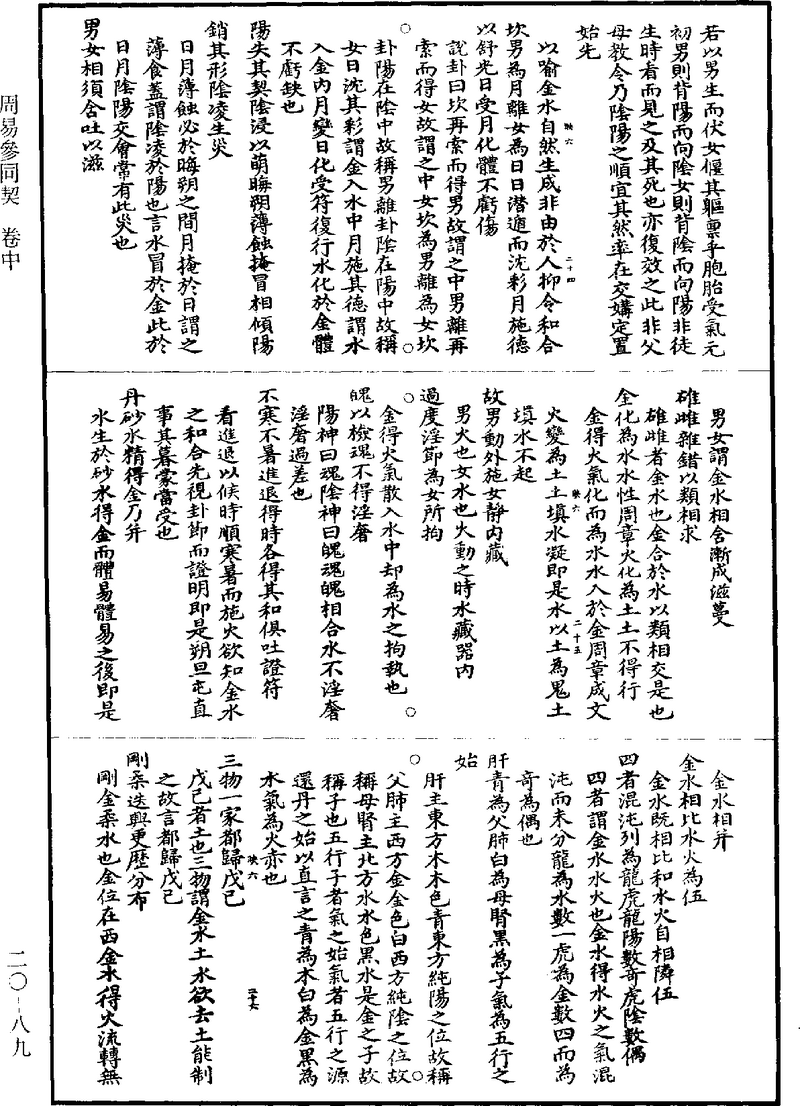 周易參同契　卷中
二〇－八九
若以男生而伏女偃其軀稟乎胞胎受氣元
初男則背陽而向陰女則背陰而向陽非徒
生時着而見之及其死也亦復效之此非父
母教令乃陰陽之順宜其然率在交媾定置
始先
以喻金水自然生成非由於人抑令和合
映六
二十四
坎男為月離女為日日潛適而沈彩月施德
以舒光日受月化體不虧傷
說卦曰坎再索而得男故謂之中男離再
索而得女故謂之中女坎為男離為女坎
卦陽在陰中故稱男離卦陰在陽中故稱
女日沈其彩謂金入水中月施其德謂水
入金內月變日化受符復行水化於金體
不虧缺也
陽失其契陰浸以萌晦朔薄蝕掩冒相傾陽
銷其形陰凌生災
日月薄蝕必於晦朔之間月掩於日謂之
薄食蓋謂陰凌於陽也言水冒於金此於
日月陰陽交會常有此災也
男女相須含吐以滋
男女謂金水相含漸成滋蔓
雄雌雜錯以類相求
雄雌者金水也金合於水以類相交是也
金化為水水性周章火化為土土不得行
金得火氣化而為水水入於金周章成文
映六
二十五
火變為土土填水凝即是水以土為鬼土
填水不起
故男動外施女靜內藏
男火也女水也火動之時水藏器內
過度淫節為女所拘
金得火氣散入水中却為水之拘執也
魄以檢魂不得淫奢
陽神曰魂陰神曰魄魂魄相合水不淫奢
淫磨過差也
不寒不暑進退得時各得其和俱吐證符
看進退以候時順寒暑而施火欲知金水
之和合先視卦節而證明即是朔旦屯直
事其暮蒙當受也
丹砂水精得金乃并
水生於砂水得金而體易體易之後即是
金水相并
金水相比水火為伍
金水既相比和水火自相隣伍
四者混沌列為龍虎龍陽數奇虎陰數偶
四者謂金水水火也金水得水火之氣混
沌而未分龍為水數一虎為金數四而為
奇為偶也
肝青為父肺白為母腎黑為子氣為五行之
始
肝主東方木木色青東方純陽之位故稱
父肺主西方金金色白西方純陰之位故
稱母腎主北方水水色黑水是金之子故
稱子也五行子者氣之始氣者五行之源
還丹之始以直言之青為木白為金黑為
水氣為火亦也
三物一家都歸戊己
映六
二十六
戊己者土也三物謂金水土水欲去土能制
之故言都歸戊己
剛柔迭興更歷分布
剛金柔水也金位在西金水得火流轉無